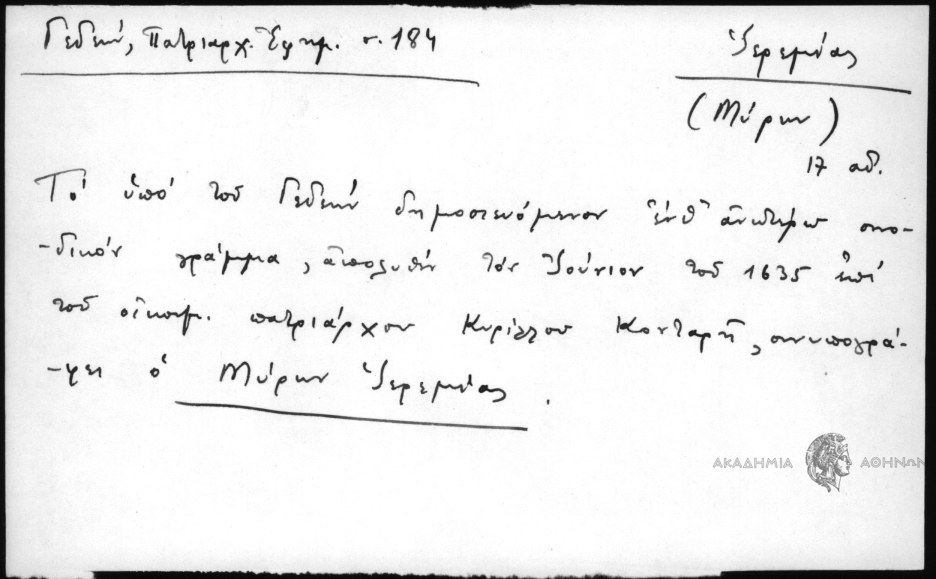 Γεδεών, Πατριαρχ. Ἐφημ. σ. 184
Ἱερεμίας
(Μύρων)
17 αἰ.
Τό ὑπό τοῦ Γεδεών δημοσιευόμενον ἔνθ' ἀνωτέρω συνο-
-δικόν γράμμα, ἀπολυθέν τόν Ἰούνιον τοῦ 1635 ἐπί
τοῦ οἰκουμ. πατριάρχου Κυρίλλου Κονταρῆ, συνυπογρά-
-φει ὁ Μύρων Ἱερεμίας.
ΑΚΑΔΗΜΙΑ ΑΘΗΝΩΝ